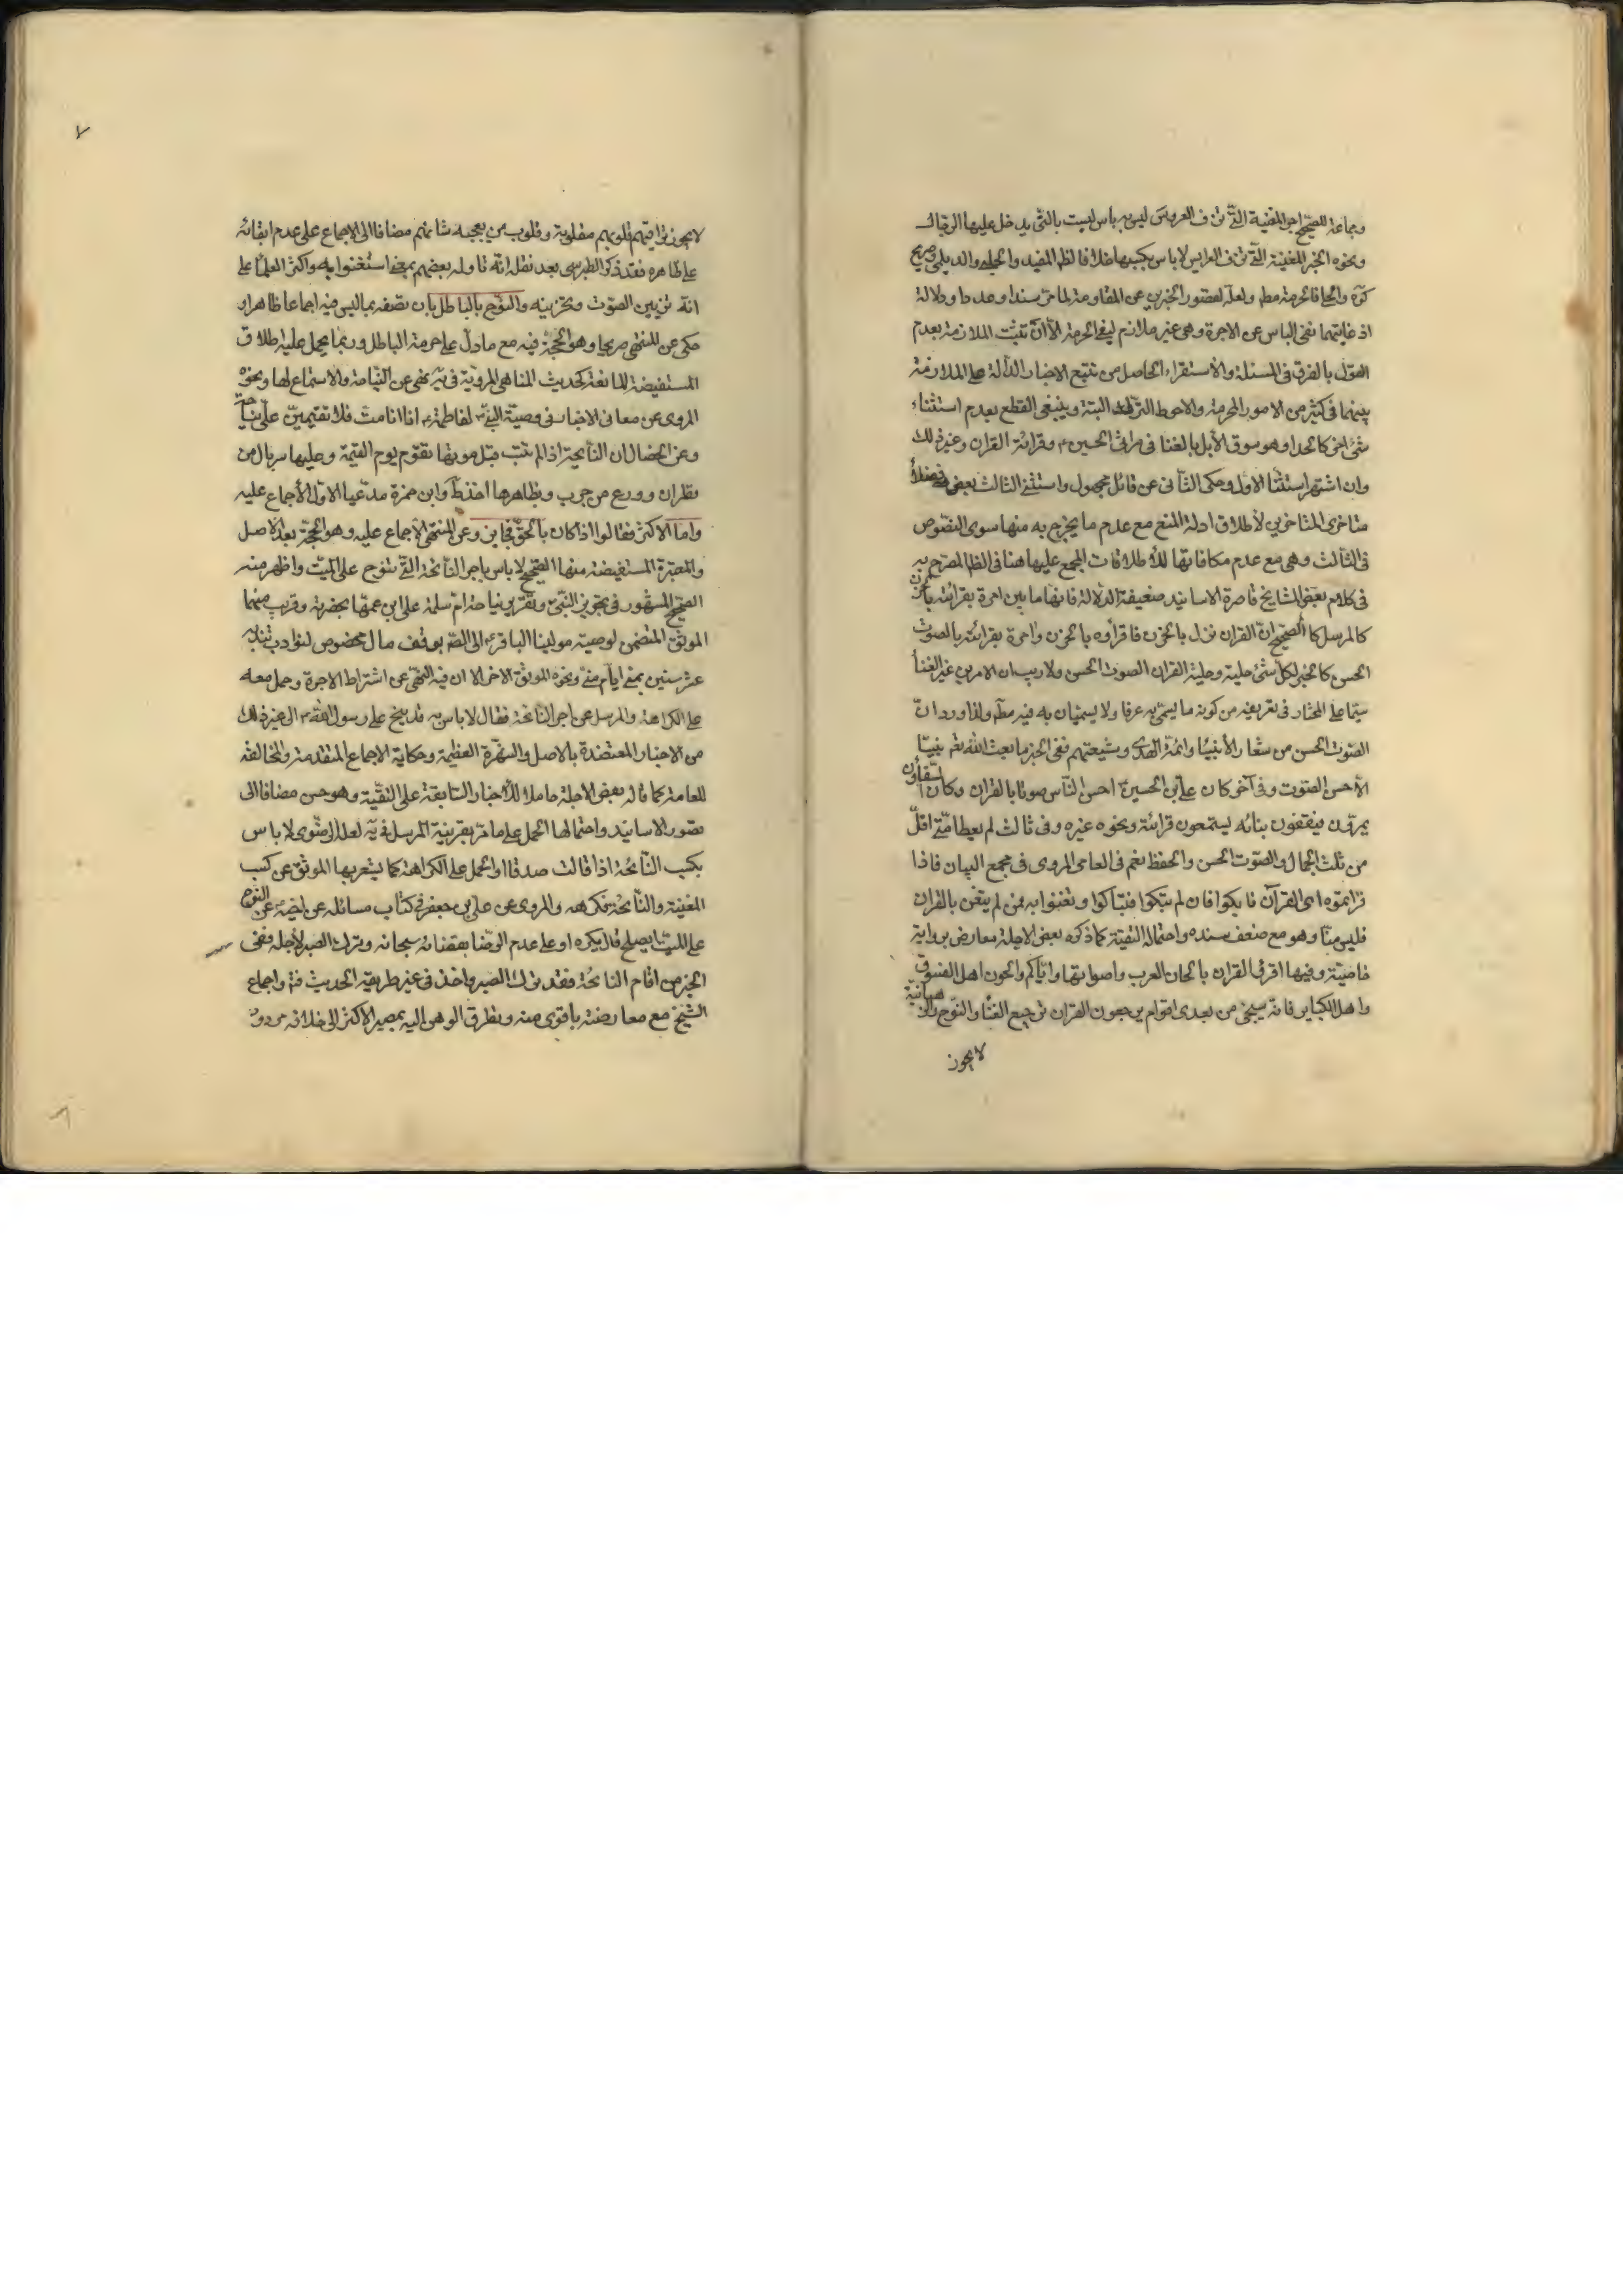 وجماعة للصحيح اجر المغنية التي تزف العروس ليس به باس ليست بالتي يدخل عليها الرجال
ونحوه الخبر المغنية التي تزف العرايس لا باس بكسبها خلافا لظ المفيد والحلي والديلمي وصريح
كره والحلي فالحرمة مطم ولعله لقصور الخبرين عن المقاومة لما مر سندا وعددا ودلالة
اذ غايتهما نفى الباس عن الاجرة وهى غير ملازم لنفى الحرمة الا ان تثبت الملازمة بعدم
القول بالفرق فى المسئلة والاستقراء الحاصل من تتبع الاخبار الدالة على الملازمة
بينهما فى كثير من الامور المحرمة والاحوط الترك البتة وينبغى القطع بعدم استثناء
شئ اخر كالحداء وهو سوق الأبل بالغنا فى مراثى الحسين ع وقرائة القران وغير ذلك
وان اشتهر استثنا الاول وحكى الثانى عن قائل مجهول واستثنى الثالث بعض فضلاء
متاخرى المتاخرين لأطلاق ادلة المنع مع عدم ما يخرج به منها سوى النصوص
فى الثالث وهى مع عدم مكافاتها للأطلاقات المجمع عليها هنا فى الظ المصرح به
فى كلام بعض المشايخ قاصرة الاسانيد ضعيفة الدلالة فانها ما بين امرة بقرائته بالحزن
كالمرسل كالصحيح ان القران نزل بالحزن فاقرأوه بالحزن وامرة بقرائته بالصوت
الحسن كالخبر لكل شئ حلية وحلية القران الصوت الحسن ولا ريب ان الامرين غير الغنا
سيما على المختار فى تعريفه من كونه ما يسمى به عرفا ولا يسميان به فيه مطم ولذا ورد ان
الصوت الحسن من شعار الأنبيا وائمة الهدى وشيعتهم ففى الخبر ما بعث الله تعم نبيا
الأحسن الصوت وفى آخر كان على بن الحسين ع احسن الناس صوتا بالقران وكان السقاؤن
يمرون فيقفون ببابه ليستمعون قرائته ونحوه غيره وفى ثالث لم يعط امتى اقل
من ثلث الجمال والصوت الحسن والحفظ نعم فى العامى المروى فى مجمع البيان فاذا
قرأتموه اى القرآن فابكوا فان لم تبكوا فتباكوا وتغنوا به فمن لم يتغن بالقران
فليس منا وهو مع ضعف سنده واحتماله التقية كما ذكره بعض الاجلة معارض برواية
خاصية وفيها اقرئى القران بالحان العرب واصواتها واياكم ولحون اهل الفسوق
واهل الكباير فانه سيجئ من بعدى اقوام يرجعون القران ترجيع الغنا والنوح والرهبانية
لا يجوز
٧
لا يجوز تراقيهم قلوبهم مقلوبة وقلوب من يعجبه شانهم مضافا الى الاجماع على عدم ابقائه
على ظاهره فقد ذكر الطبرسى بعد نقله انه تاوله بعضهم بمعنى استغنوا به واكثر العلما على
انه تزيين الصوت وتحزينه والنوح بالباطل بان تصفه بما ليس فيه اجماعا ظاهرا و
حكى عن المنتهى صريحا وهو الحجة فيه مع ما دل على حرمة الباطل وربما يحمل عليه اطلاق
المستفيضة المانعة كحديث المناهى المروية فى يه نهى عن النياحة والاستماع لها ونحوه
المروى عن معانى الاخبار فى وصية النبى ص لفاطمة ع اذا انا مت فلا تقيمين على نياحة
وعن الخصال ان النائحة اذا لم تتب قبل موتها تقوم يوم القيمة وعليها سربال من
قطران وورع من جرب وبظاهرها اخذ ط وابن حمزة مدعيا الاول الأجماع عليه
واما الاكثر فقالوا اذا كان بالحق فجايز وعن المنتهى الأجماع عليه وهو الحجة بعد الاصل
والمعتبرة المستفيضة منها الصحيح لا باس باجر النائحة التى تنوح على الميت واظهر منه
الصحيح المشهور فى تجويز النبى ص وتقرير نياحة ام سلمة على ابن عمها بحضرته وقريب منهما
الموثق المتضمن لوصية مولينا الباقر ع الى الصم بوقف مال مخصوص لنوادب تندبه
عشر سنين بمنى ايام منى ونحوه الموثق الاخر الا ان فيه النهى عن اشتراط الاجرة وحمل معه
على الكراهة والمرسل عن اجر النائحة فقال لا باس به قد نيح على رسول الله ص الى غير ذلك
من الاخبار المعتضدة بالاصل والشهرة العظيمة وحكاية الاجماع المتقدمة والمخالفة
للعامة كما قاله بعض الاجلة حاملا للأخبار السابقة على التقية وهو حسن مضافا الى
قصور الاسانيد واحتمالها الحمل على ما مر بقرينة المرسل فى يه لعله الرضوى لا باس
بكسب النائحة اذا قالت صدقا او الحمل على الكراهة كما يشعر بها الموثق عن كسب
المغنية والنائحة فكرهه والمروى عن على بن جعفر فى كتاب مسائله عن اخيه ع عن النوح
على الميت ايصلح قال يكره او على عدم الرضا بقضائه سبحانه وترك الصبر لأجله ففى
الخبر من اقام النائحة فقد ترك الصبر واخذ فى غير طريقه الحديث فتم واجماع
الشيخ مع معارضته باقوى منه وتطرق الوهن اليه بمصير الاكثر الى خلافه مردود